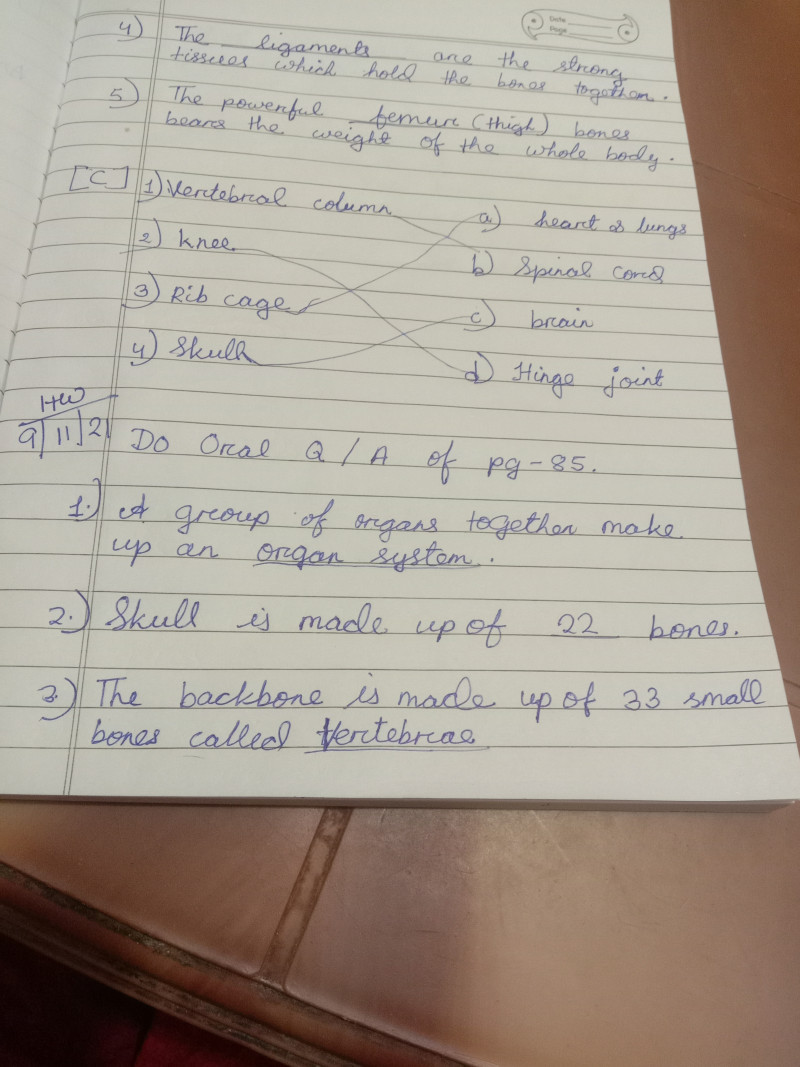 Date
Page
4) The ligaments are the strong
tissues which hold the bones together.
5) The powerful femur (thigh) bones
bears the weight of the whole body.
[C] 1) Vertebral column a) heart & lungs
2) Knee b) Spinal cord
3) Rib cage c) brain
4) Skull d) Hinge joint
HW
9/11/21 Do Oral Q / A of pg-85.
1.) A group of organs together make
up an organ system.
2.) Skull is made up of 22 bones.
3.) The backbone is made up of 33 small
bones called Vertebrae